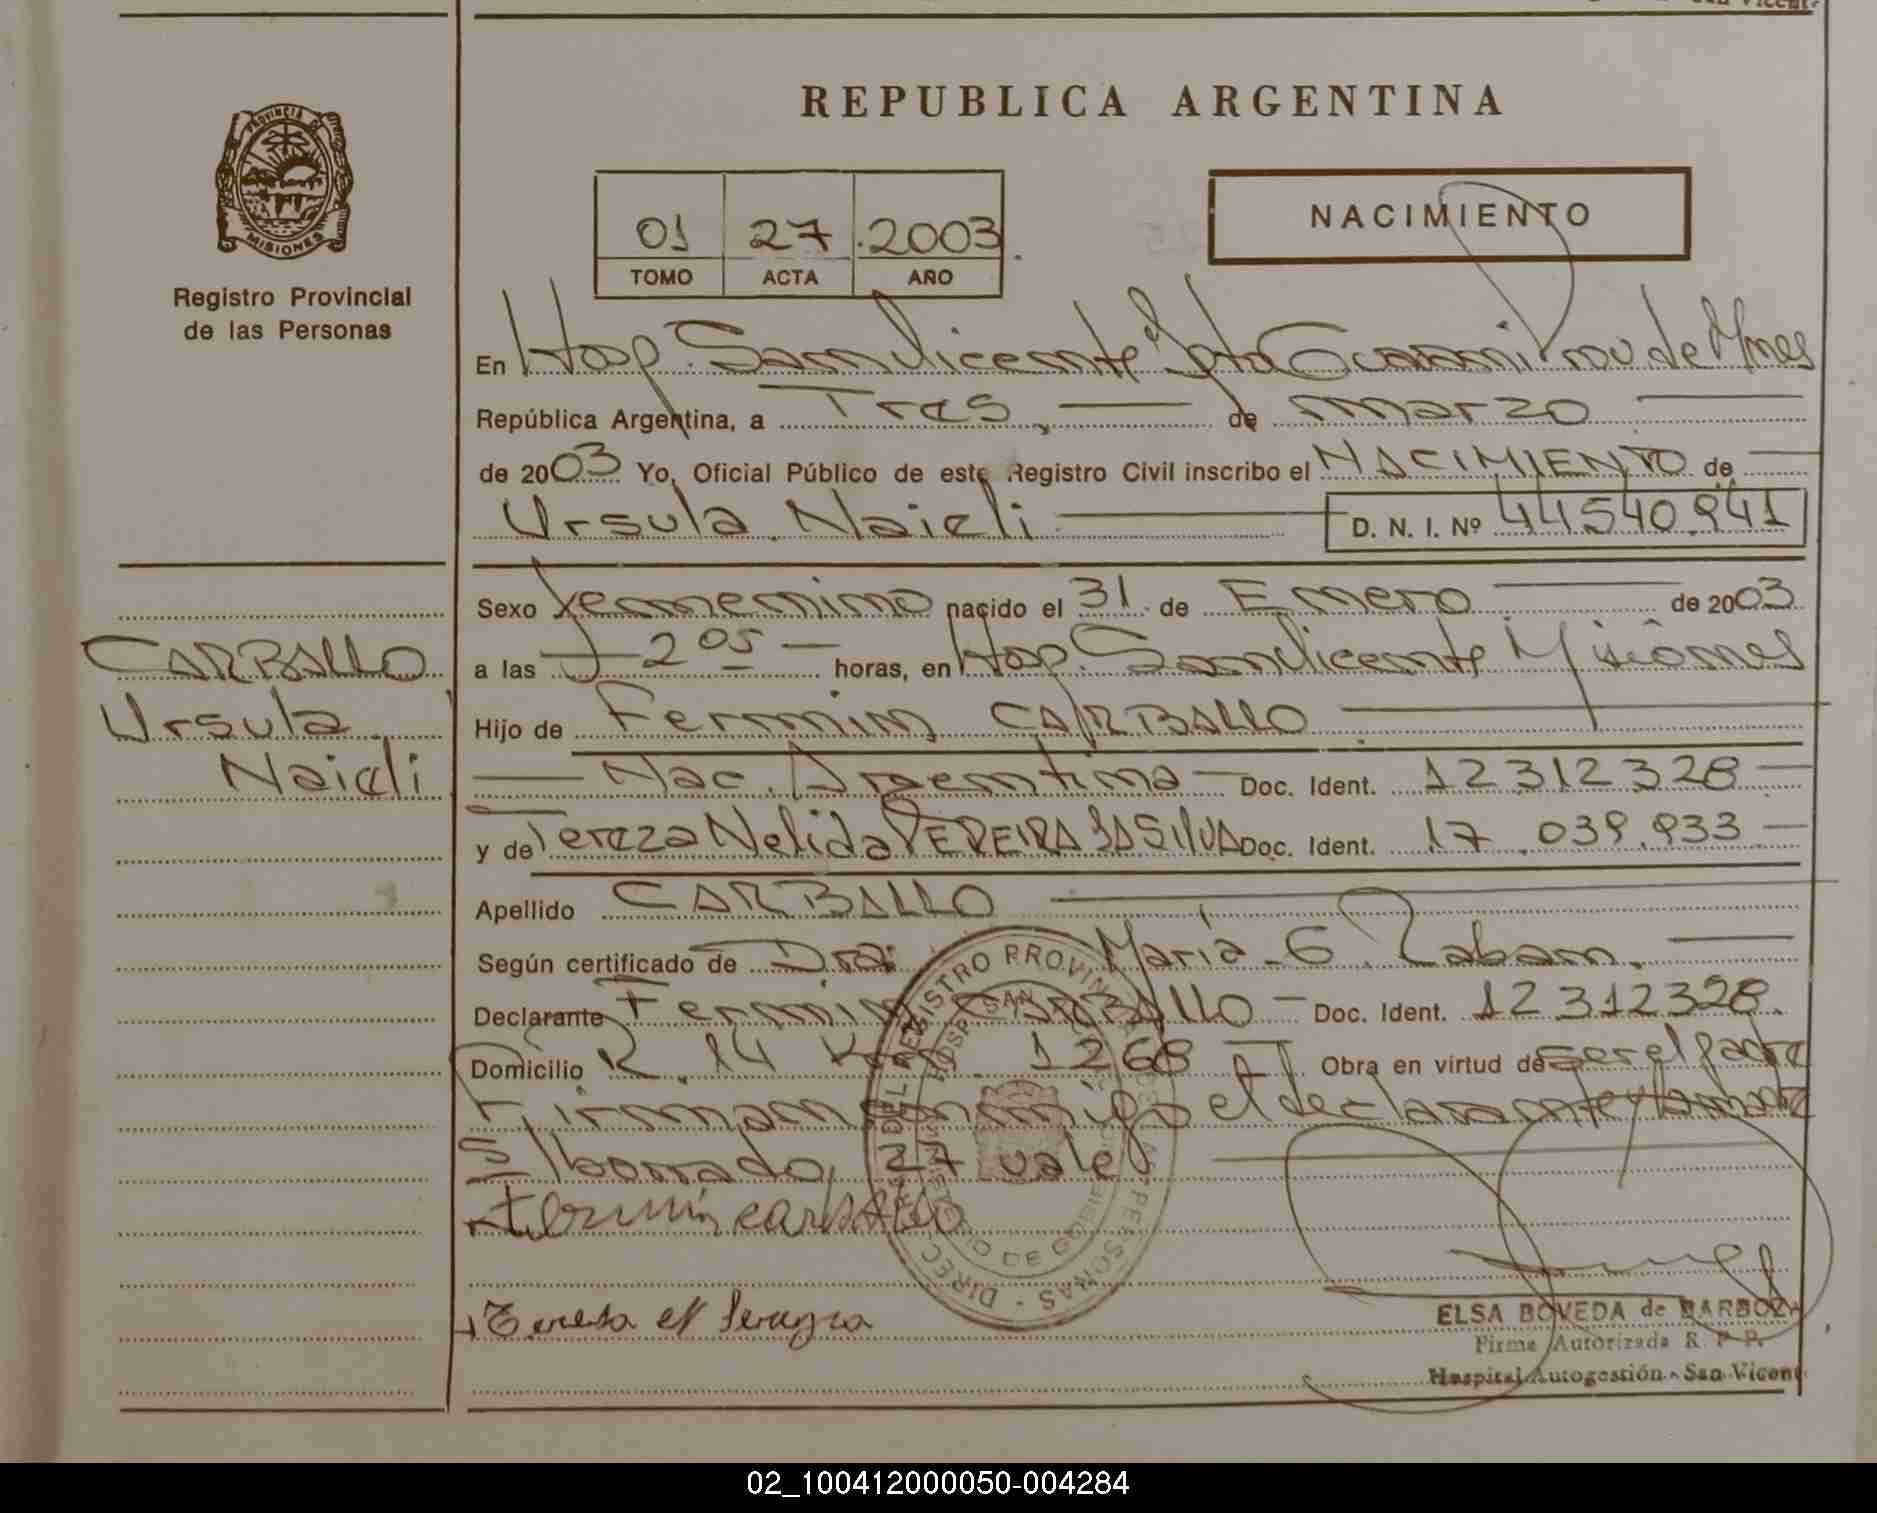 REPUBLICA ARGENTINA
PROVINCIA DE
MISIONES
Registro Provincial
de las Personas
01 27 2003
TOMO ACTA AÑO
NACIMIENTO
En Hosp. San Vicente Dpto Guarani Prov de Mnes
República Argentina, a Tres de marzo
de 2003 Yo, Oficial Público de este Registro Civil inscribo el NACIMIENTO de
Ursula Naieli D. N. I. Nº 44540941
Sexo Femenino nacido el 31 de Enero de 2003
a las 2 05 horas, en Hosp. San Vicente Misiones
Hijo de Fermin CARBALLO
Nac. Argentina Doc. Ident. 12312328
y de Tereza Nelida PEREIRA DA SILVA Doc. Ident. 17.039.933
Apellido CARBALLO
Según certificado de Dra: Maria G.
Declarante Fermin CARBALLO Doc. Ident. 12312328.
Domicilio R. 14 Km 1268 Obra en virtud de ser el padre
Firman conmigo el declarante y la madre
S/borrado, 27 vale
Fermin carBALLO
Teresa N
CARBALLO
Ursula
Naieli
ELSA BOVEDA de BARBOZA
Firma Autorizada R. P. P.
Hospital Autogestión - San Vicente
02_100412000050-004284